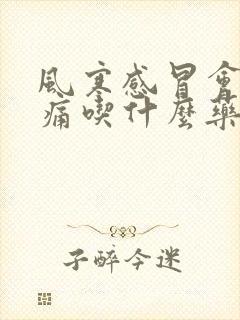 風寒感冒會
痛喫什麼藥
子醉今迷